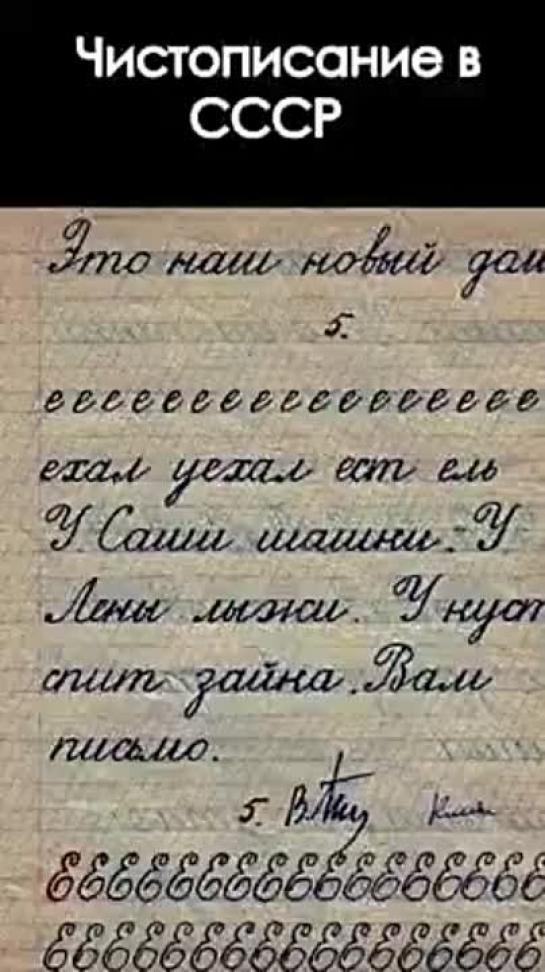 Чистописание в
СССР
Это наш новый дом
5.
е е е е е е е е е е е е е е е е е
ехал уехал ест ель
У Саши шашки. У
Лены лыжи. У куст
спит зайка. Вам
письмо.
5.